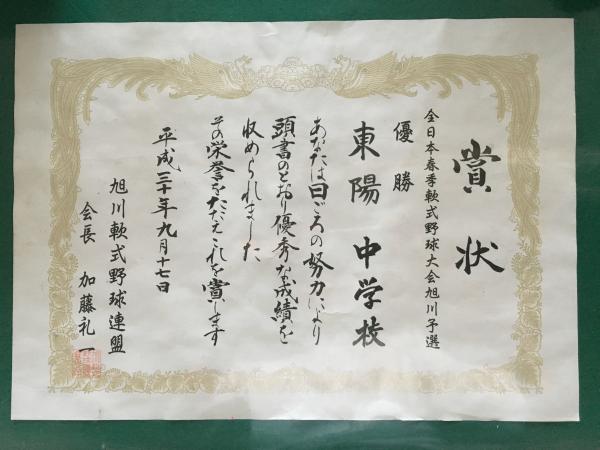 賞状
全日本春季軟式野球大会旭川予選
優勝
東陽中学校
あなたは日ごろの努力により
頭書のとおり優秀な成績を
収められました
その栄誉をたたえこれを賞します
平成三十年九月十七日
旭川軟式野球連盟
会長 加藤礼一